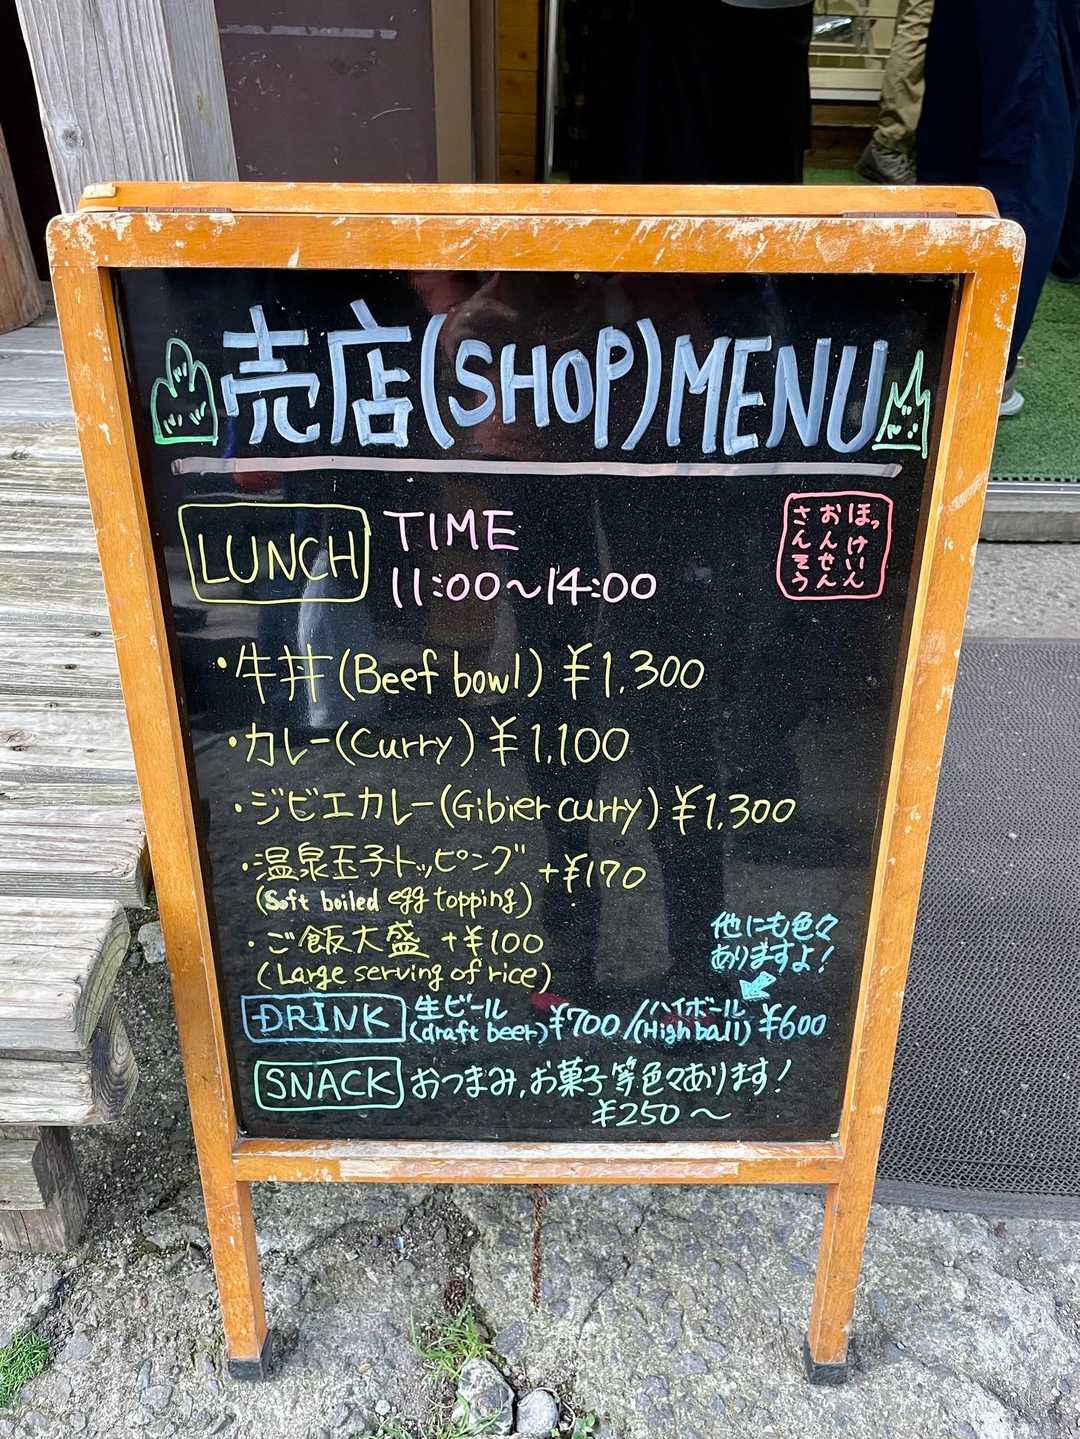 売店(SHOP)MENU
LUNCH
TIME
11:00～14:00
ほっけいん
おんせん
さんそう
・牛丼(Beef bowl) ¥1,300
・カレー(Curry) ¥1,100
・ジビエカレー(Gibier curry) ¥1,300
・温泉玉子トッピング +¥170
(Soft boiled egg topping)
・ご飯大盛 +¥100
(Large serving of rice)
他にも色々
ありますよ!
DRINK 生ビール(draft beer) ¥700/ハイボール(Highball) ¥600
SNACK おつまみ,お菓子等色々あります!
¥250～